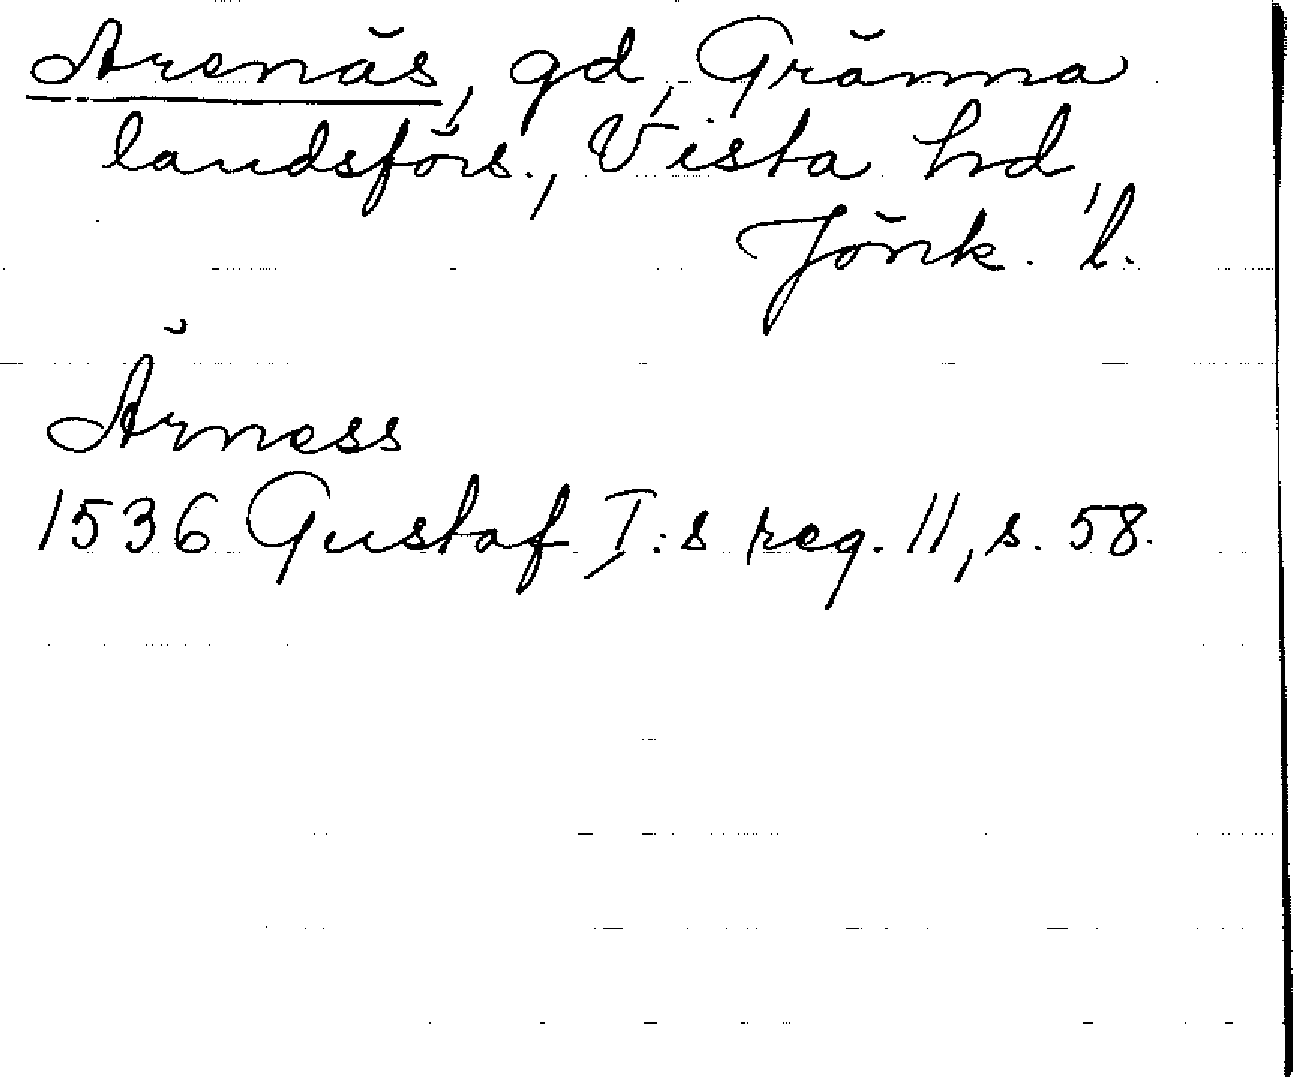 Arenäs, gd, Gränna
landsförs., Vista hd,
Jönk. l.
Ärness
1536 Gustaf I:s reg. 11, s. 58.